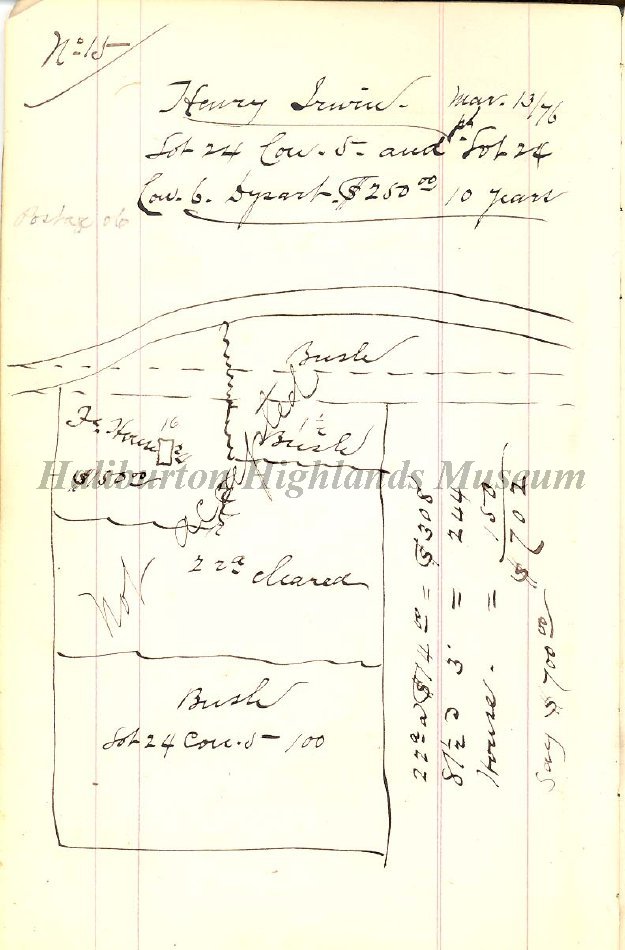 No 15
Henry Irwin. Mar. 13/76
Lot 24 Con. 5 - and pt. Lot 24
Con. 6. Dysart. $250.00 10 years
06
Bush
Fr. House
16
22
$150.00
1½
Bush
Not accepted
22a cleared
Bush
Lot 24 Con. 5 - 100
22a a $14.00 = $308
81½ a 3. = 244
House. = 150
$702
Say $700.00
Haliburton Highlands Museum